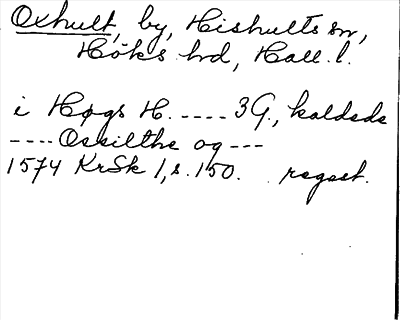 Oxhult, by, Hishults sn,
Höks hd, Hall. l.
i Høgs H. ---- 3 G., kaldeds
---- Ossilthe og ---
1574 KrSk 1, s. 150. regest.